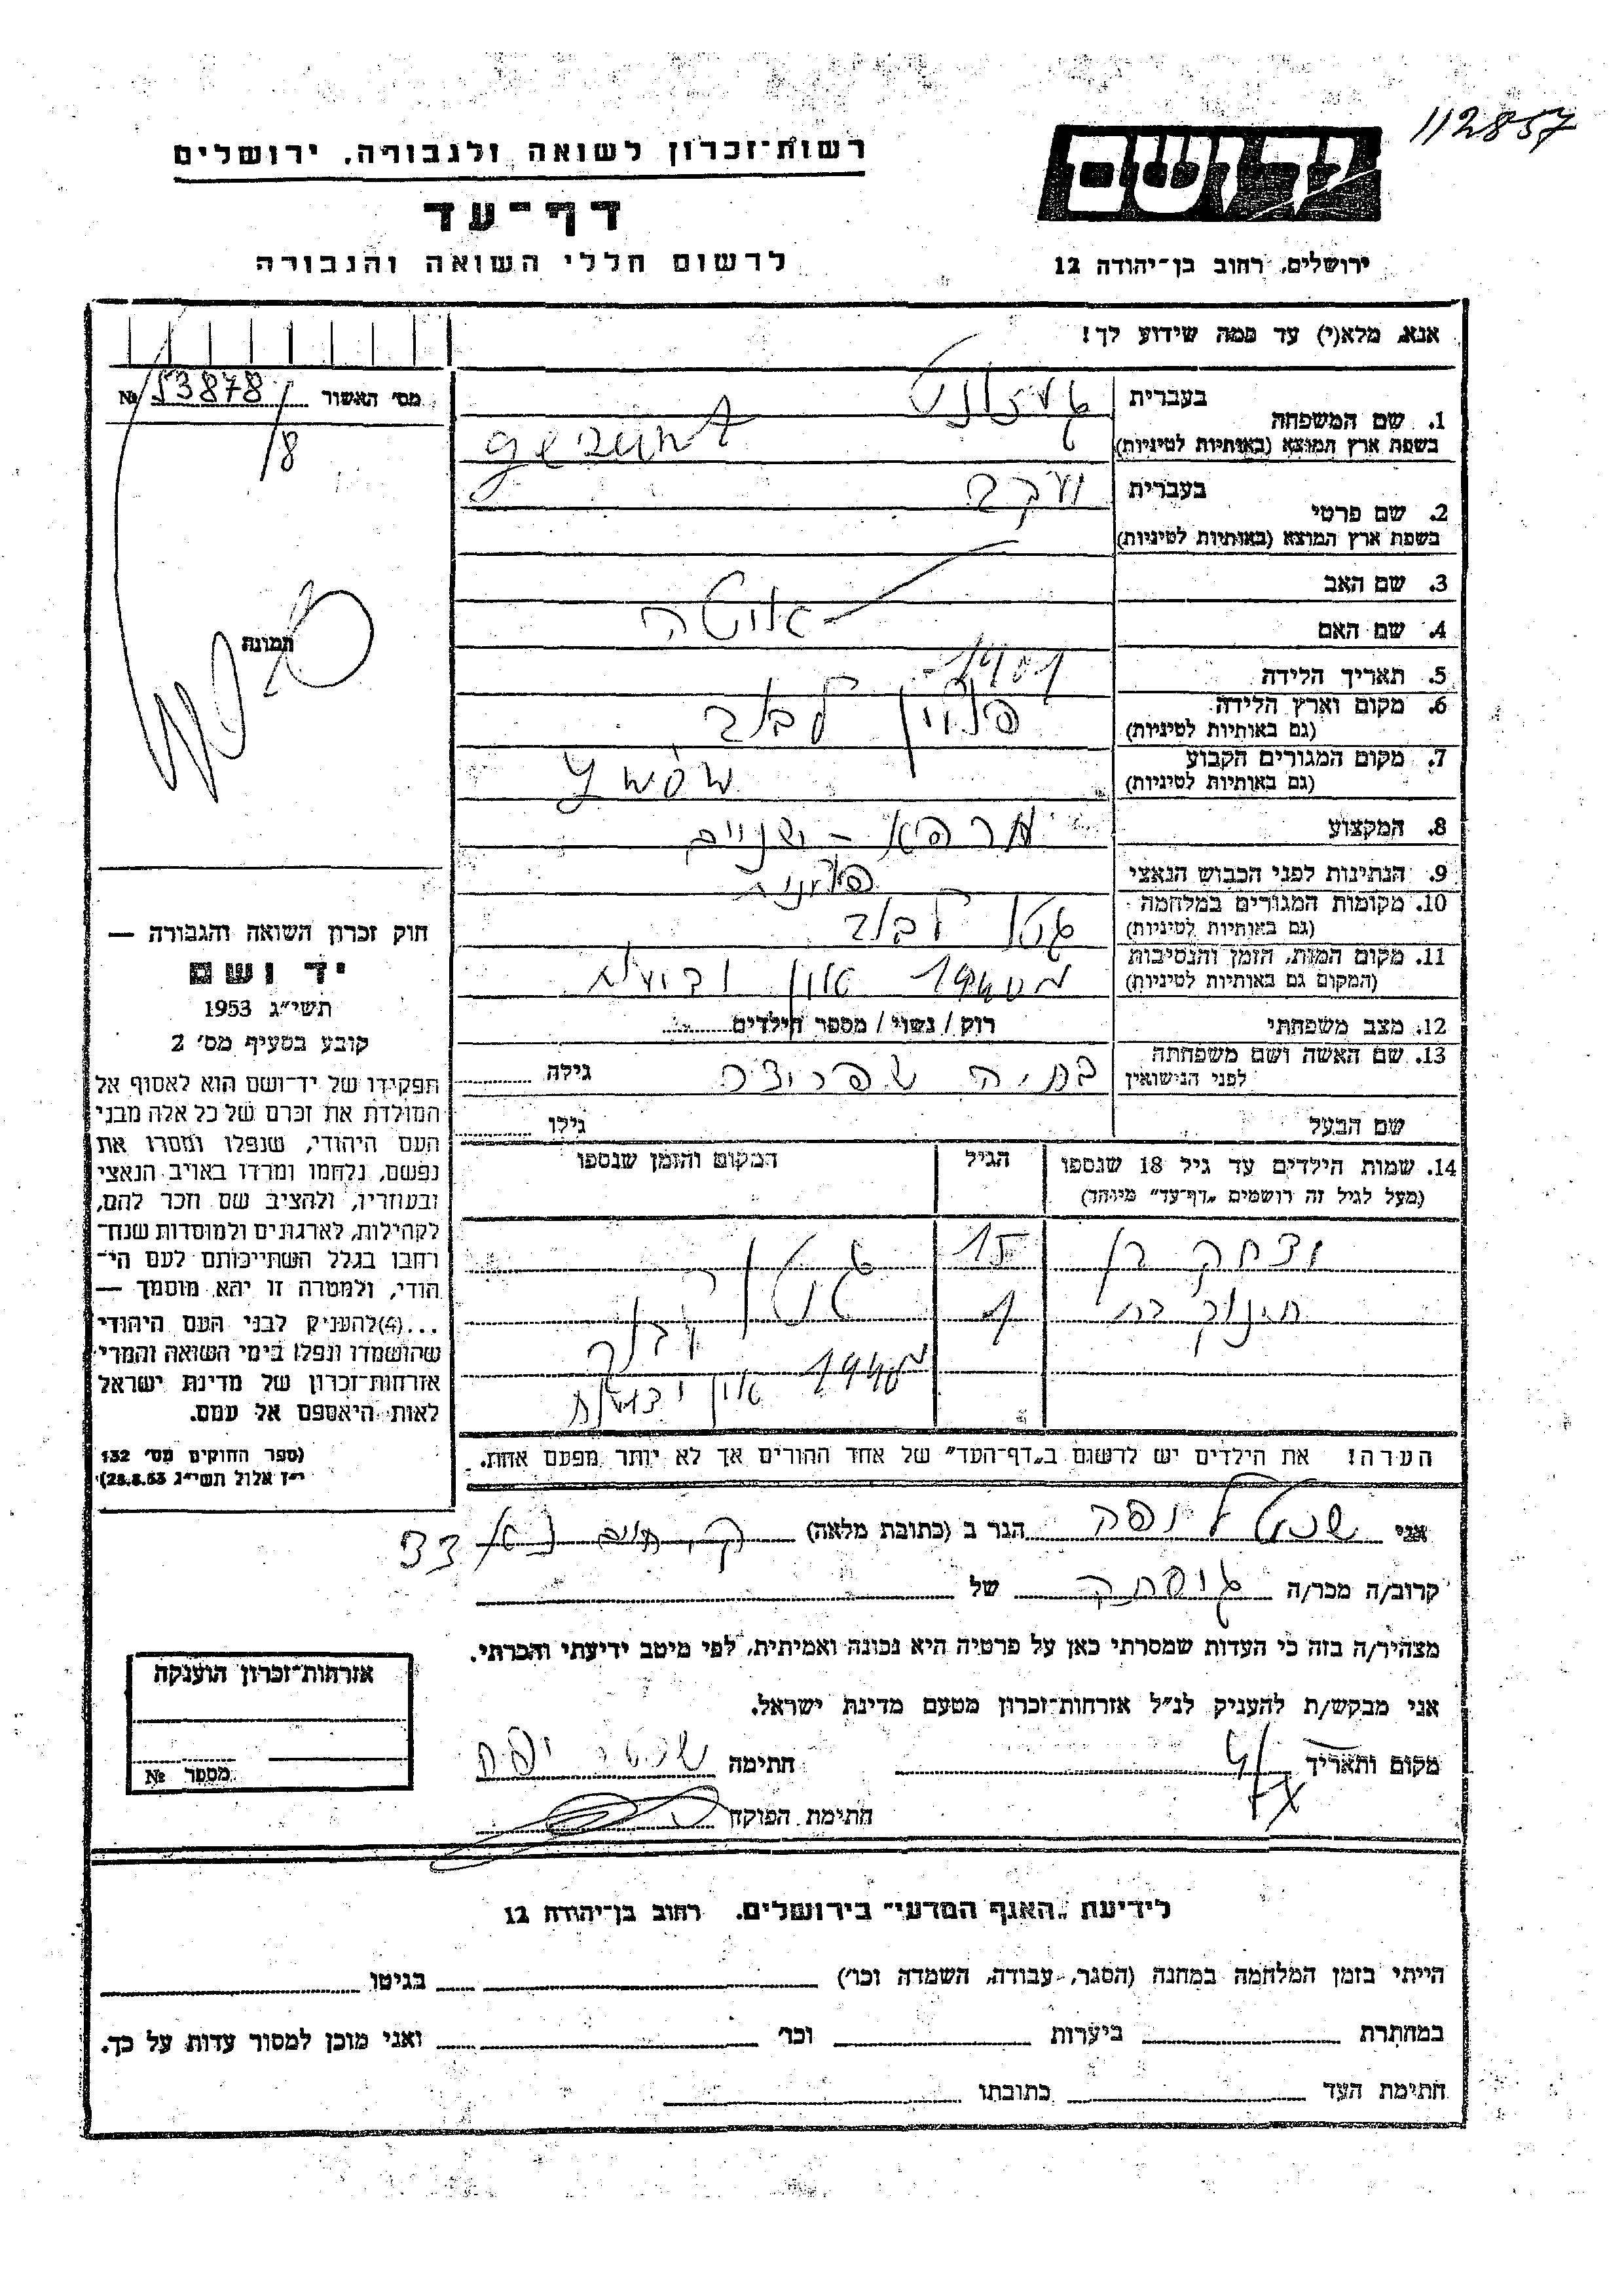 112857
יד ושם
רשות־זכרון לשואה ולגבורה, ירושלים
דף־עד
לרשום חללי השואה והגבורה
ירושלים, רחוב בן־יהודה 12
אנא, מלא(י) עד כמה שידוע לך!
מס׳ האשור № 153878
/8
תמונה
1. שם המשפחה
בעברית
בשפת ארץ המוצא (באותיות לטיניות)
2. שם פרטי
בעברית יעקב
בשפת ארץ המוצא (באותיות לטיניות)
3. שם האב
4. שם האם
5. תאריך הלידה 1901
6. מקום וארץ הלידה פולין לבוב
(גם באותיות לטיניות)
7. מקום המגורים הקבוע
(גם באותיות לטיניות) Lwów
8. המקצוע מרפא - שניים
9. הנתינות לפני הכבוש הנאצי פולנית
10. מקומות המגורים במלחמה גטו לבוב
(גם באותיות לטיניות)
11. מקום המות, הזמן והנסיבות
(המקום גם באותיות לטיניות)
12. מצב משפחתי רוק / נשוי / מספר הילדים
13. שם האשה ושם משפחתה
לפני הנישואין
בתיה גילה
שם הבעל גילו
14. שמות הילדים עד גיל 18 שנספו
(מעל לגיל זה רושמים „דף־עד" מיוחד)
הגיל
המקום והזמן שנספו
יצחק בן 15 גטו
תינוק בת 1 לבוב
הערה! את הילדים יש לרשום ב„דף־העד" של אחד ההורים אך לא יותר מפעם אחת.
חוק זכרון השואה והגבורה —
יד ושם
תשי״ג 1953
קובע בסעיף מס׳ 2
תפקידו של יד־ושם הוא לאסוף אל
המולדת את זכרם של כל אלה מבני
העם היהודי, שנפלו ומסרו את
נפשם, נלחמו ומרדו באויב הנאצי
ובעוזריו, ולהציב שם וזכר להם,
לקהילות, לארגונים ולמוסדות שנח־
רחבו בגלל השתייכותם לעם הי־
הודי, ולמטרה זו יהא מוסמך —
...(4)להעניק לבני העם היהודי
שהושמדו ונפלו בימי השואה והמרי
אזרחות־זכרון של מדינת ישראל
לאות היאספם אל עמם.
(ספר החוקים מס׳ 132
י״ז אלול תשי״ג 28.8.53)
אני יפה הגר ב (כתובת מלאה) ק. חיים 33
קרוב/ה מכר/ה של
מצהיר/ה בזה כי העדות שמסרתי כאן על פרטיה היא נכונה ואמיתית, לפי מיטב ידיעתי והכרתי.
אני מבקש/ת להעניק לנ״ל אזרחות־זכרון מטעם מדינת ישראל.
מקום ותאריך חתימה
חתימת הפוקח
אזרחות־זכרון הוענקה
מספר №
לידיעת „האגף המדעי" בירושלים, רחוב בן־יהודה 12
הייתי בזמן המלחמה במחנה (הסגר, עבודה, השמדה וכו׳) בגיטו
במחתרת ביערות וכו׳ ואני מוכן למסור עדות על כך.
חתימת העד כתובתו